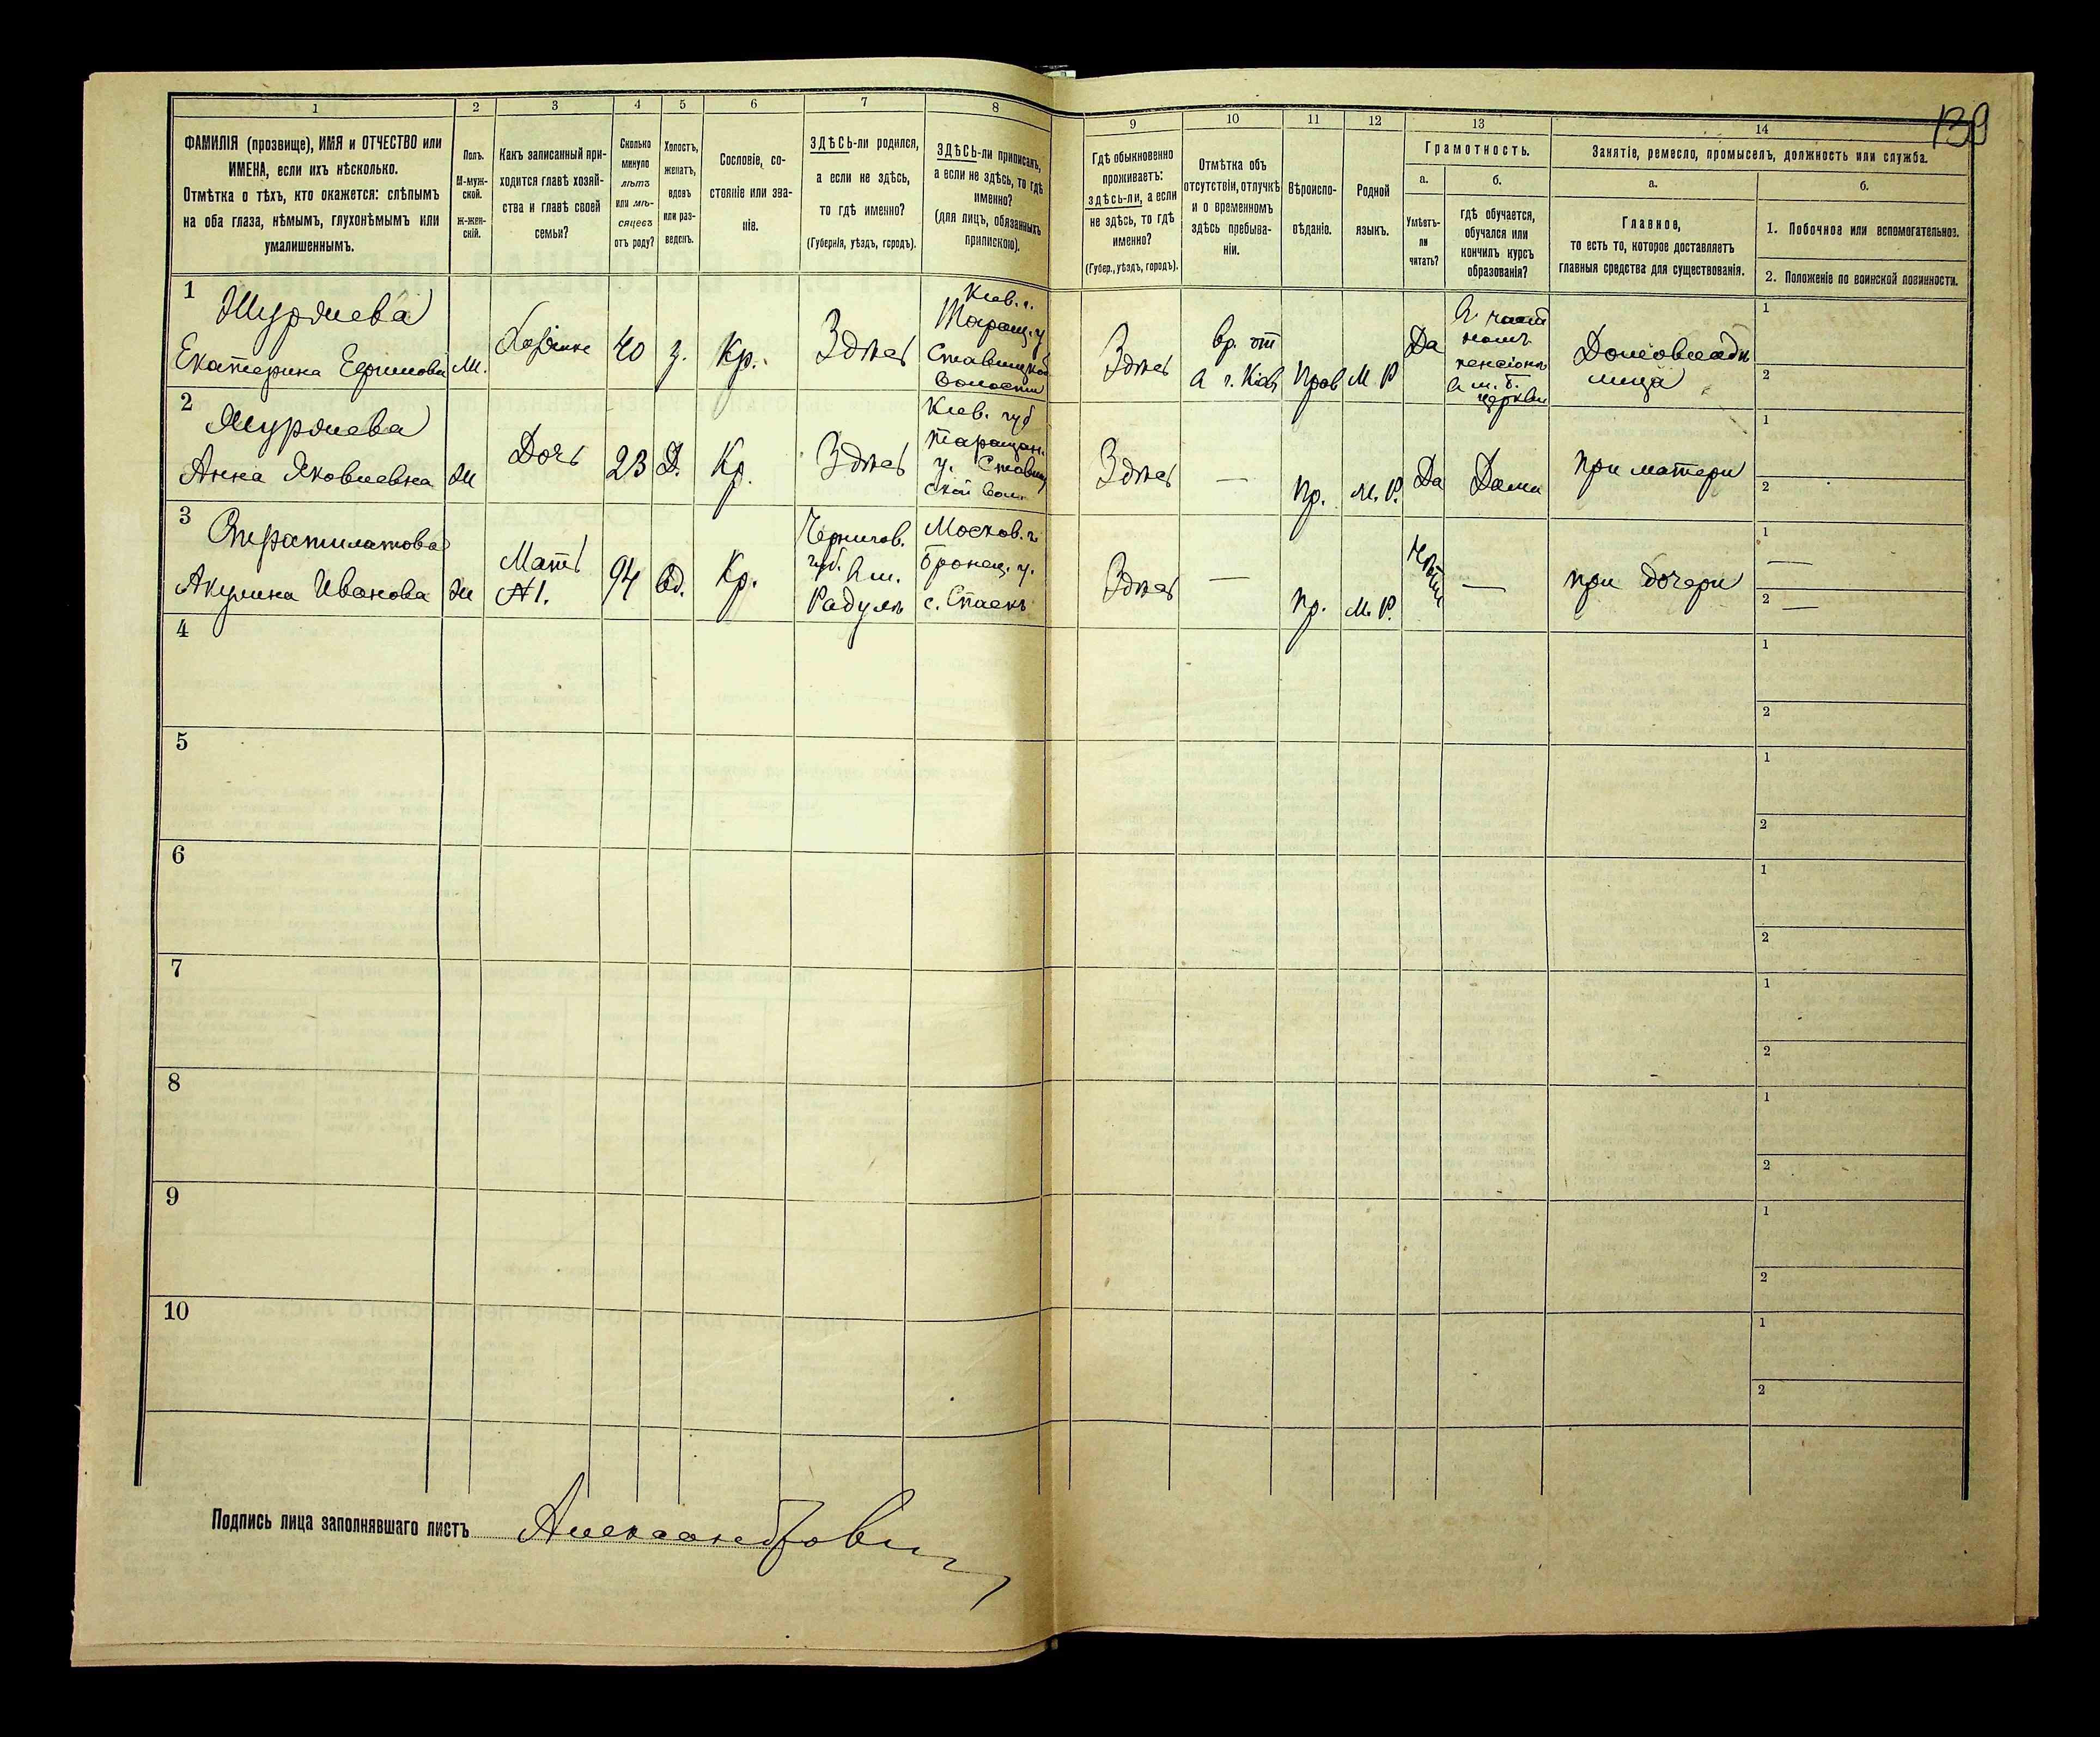 139
1
ФАМИЛІЯ (прозвище), ИМЯ и ОТЧЕСТВО или
ИМЕНА, если ихъ нѣсколько.
Отмѣтка о тѣхъ, кто окажется: слѣпымъ
на оба глаза, нѣмымъ, глухонѣмымъ или
умалишеннымъ.
2
Полъ.
М-муж-
ской.
Ж-жен-
скій.
3
Какъ записанный при-
ходится главѣ хозяй-
ства и главѣ своей
семьи?
4
Сколько
минуло
лѣтъ
или мѣ-
сяцевъ
отъ роду?
5
Холостъ,
женатъ,
вдовъ
или раз-
веденъ.
6
Сословіе, со-
стояніе или зва-
ніе.
7
ЗДѢСЬ-ли родился,
а если не здѣсь,
то гдѣ именно?
(Губернія, уѣздъ, городъ).
8
ЗДѢСЬ-ли приписанъ,
а если не здѣсь, то гдѣ
именно?
(для лицъ, обязанныхъ
припискою).
9
Гдѣ обыкновенно
проживаетъ:
здѣсь-ли, а если
не здѣсь, то гдѣ
именно?
(Губер., уѣздъ, городъ).
10
Отмѣтка объ
отсутствіи, отлучкѣ
и о временномъ
здѣсь пребыва-
ніи.
11
Вѣроиспо-
вѣданіе.
12
Родной
языкъ.
13
Грамотность.
а.
Умѣетъ-
ли
читать?
б.
гдѣ обучается,
обучался или
кончилъ курсъ
образованія?
14
Занятіе, ремесло, промыселъ, должность или служба.
а.
Главное,
то есть то, которое доставляетъ
главныя средства для существованія.
б.
1. Побочное или вспомогательное.
2. Положеніе по воинской повинности.
1
Екатерина Ефимова
40
з.
Кр.
Здѣсь
Кіев. г.
Таращ. у
Ставищской
Волости
Здѣсь
Вр. от
Прав
М. Р.
Да
пансіонѣ
церкви
Домовлад
лица
1
2
2
Анна Яковлевна
Ж
Дочь
23
Д.
Кр.
Здѣсь
Кіев. губ
Таращан.
у. Ставищ
ской Вол.
Здѣсь
—
Пр.
М. Р.
Да
Дома
при матери
1
2
3
Акулина Иванова
Ж
Мать
№1.
94
Вд.
Кр.
Чернигов.
губ.
Радуль
Москов. г.
Бронец. у.
с. Спаскъ
Здѣсь
—
Пр.
М. Р.
Нѣтъ
—
при дочери
1 —
2 —
4
1
2
5
1
2
6
1
2
7
1
2
8
1
2
9
1
2
10
1
2
Подпись лица заполнявшаго листъ Александрович